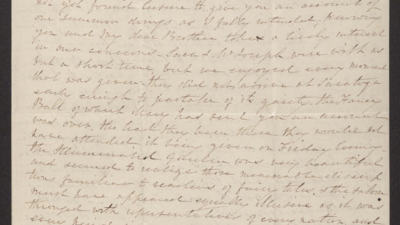 you found leisure to give you an account of
our summer doings as I fully intended knowing
you and my dear Brother take a lively interest
in our concerns. & Joseph were with us
but a short time, but we enjoyed every moment
that was given. They did not arrive at Saratoga
early enough to partake of its gaiety, the Fancy
Ball of which Mary has sent you an account
was over. Had they been there they would not
have attended, it being given on Friday Evening.
the Illuminated Garden was very beautiful
and seemed to realize those
familiar to readers of fairy tales, & the saloon
must have appeared illusive as it was
thronged with representatives of every nation and